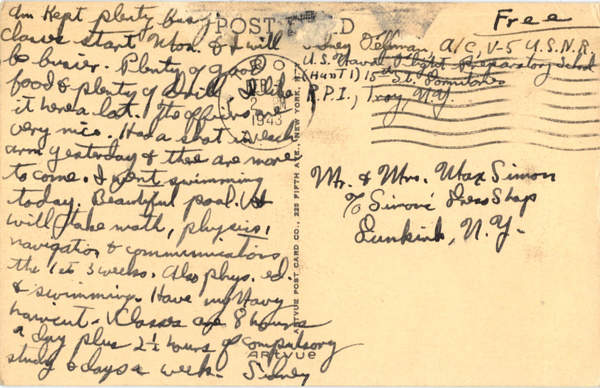 POST CARD
Free
Am Kept plenty busy.
Classes start Mon. & I will
be busier. Plenty of good
food & plenty of drill. I like
it here a lot. The officers are
very nice. Had a shot in each
arm yesterday & there are more
to come. I went swimming
today. Beautiful pool. We
will take math, physics,
navigation & communications
the 1st 3 weeks. Also phys. ed.
& swimming. Have my Navy
haircut. Classes are 8 hours
a day plus 2½ hours of compulsory
study 6 days a week. Sidney
Sidney A/C, V-5 U.S.N.R.
U.S. Naval Flight Preparatory School
(Hunt 1) 15th St. Dormitories
R.P.I., Troy, N.Y.
1943
Mr. & Mrs. Max Simon
% Simon's Dress Shop
Dunkirk, N.Y.
ARTVUE POST CARD CO., 225 FIFTH AVE., NEW YORK,
ARTVUE